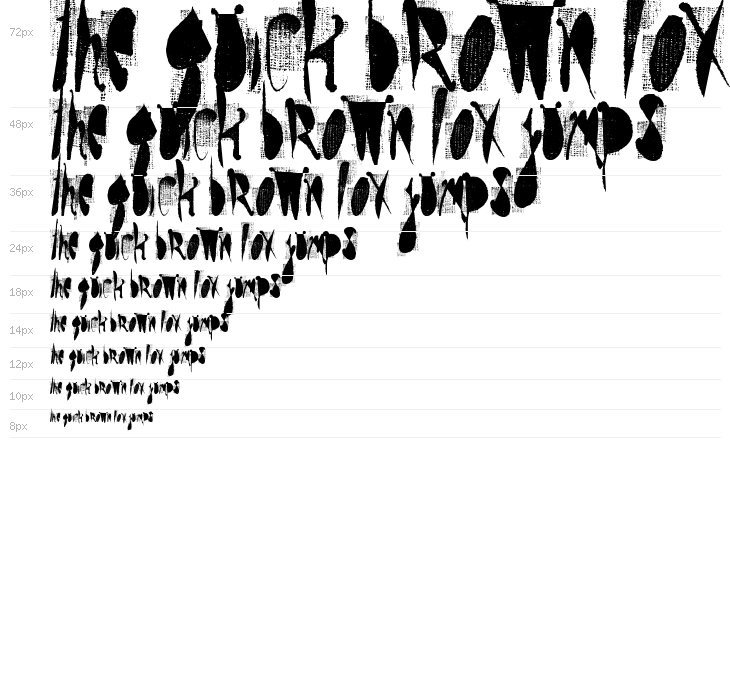 72px the quick brown fox
48px the quick brown fox jumps
36px the quick brown fox jumps
24px the quick brown fox jumps
18px the quick brown fox jumps
14px the quick brown fox jumps
12px the quick brown fox jumps
10px the quick brown fox jumps
8px the quick brown fox jumps